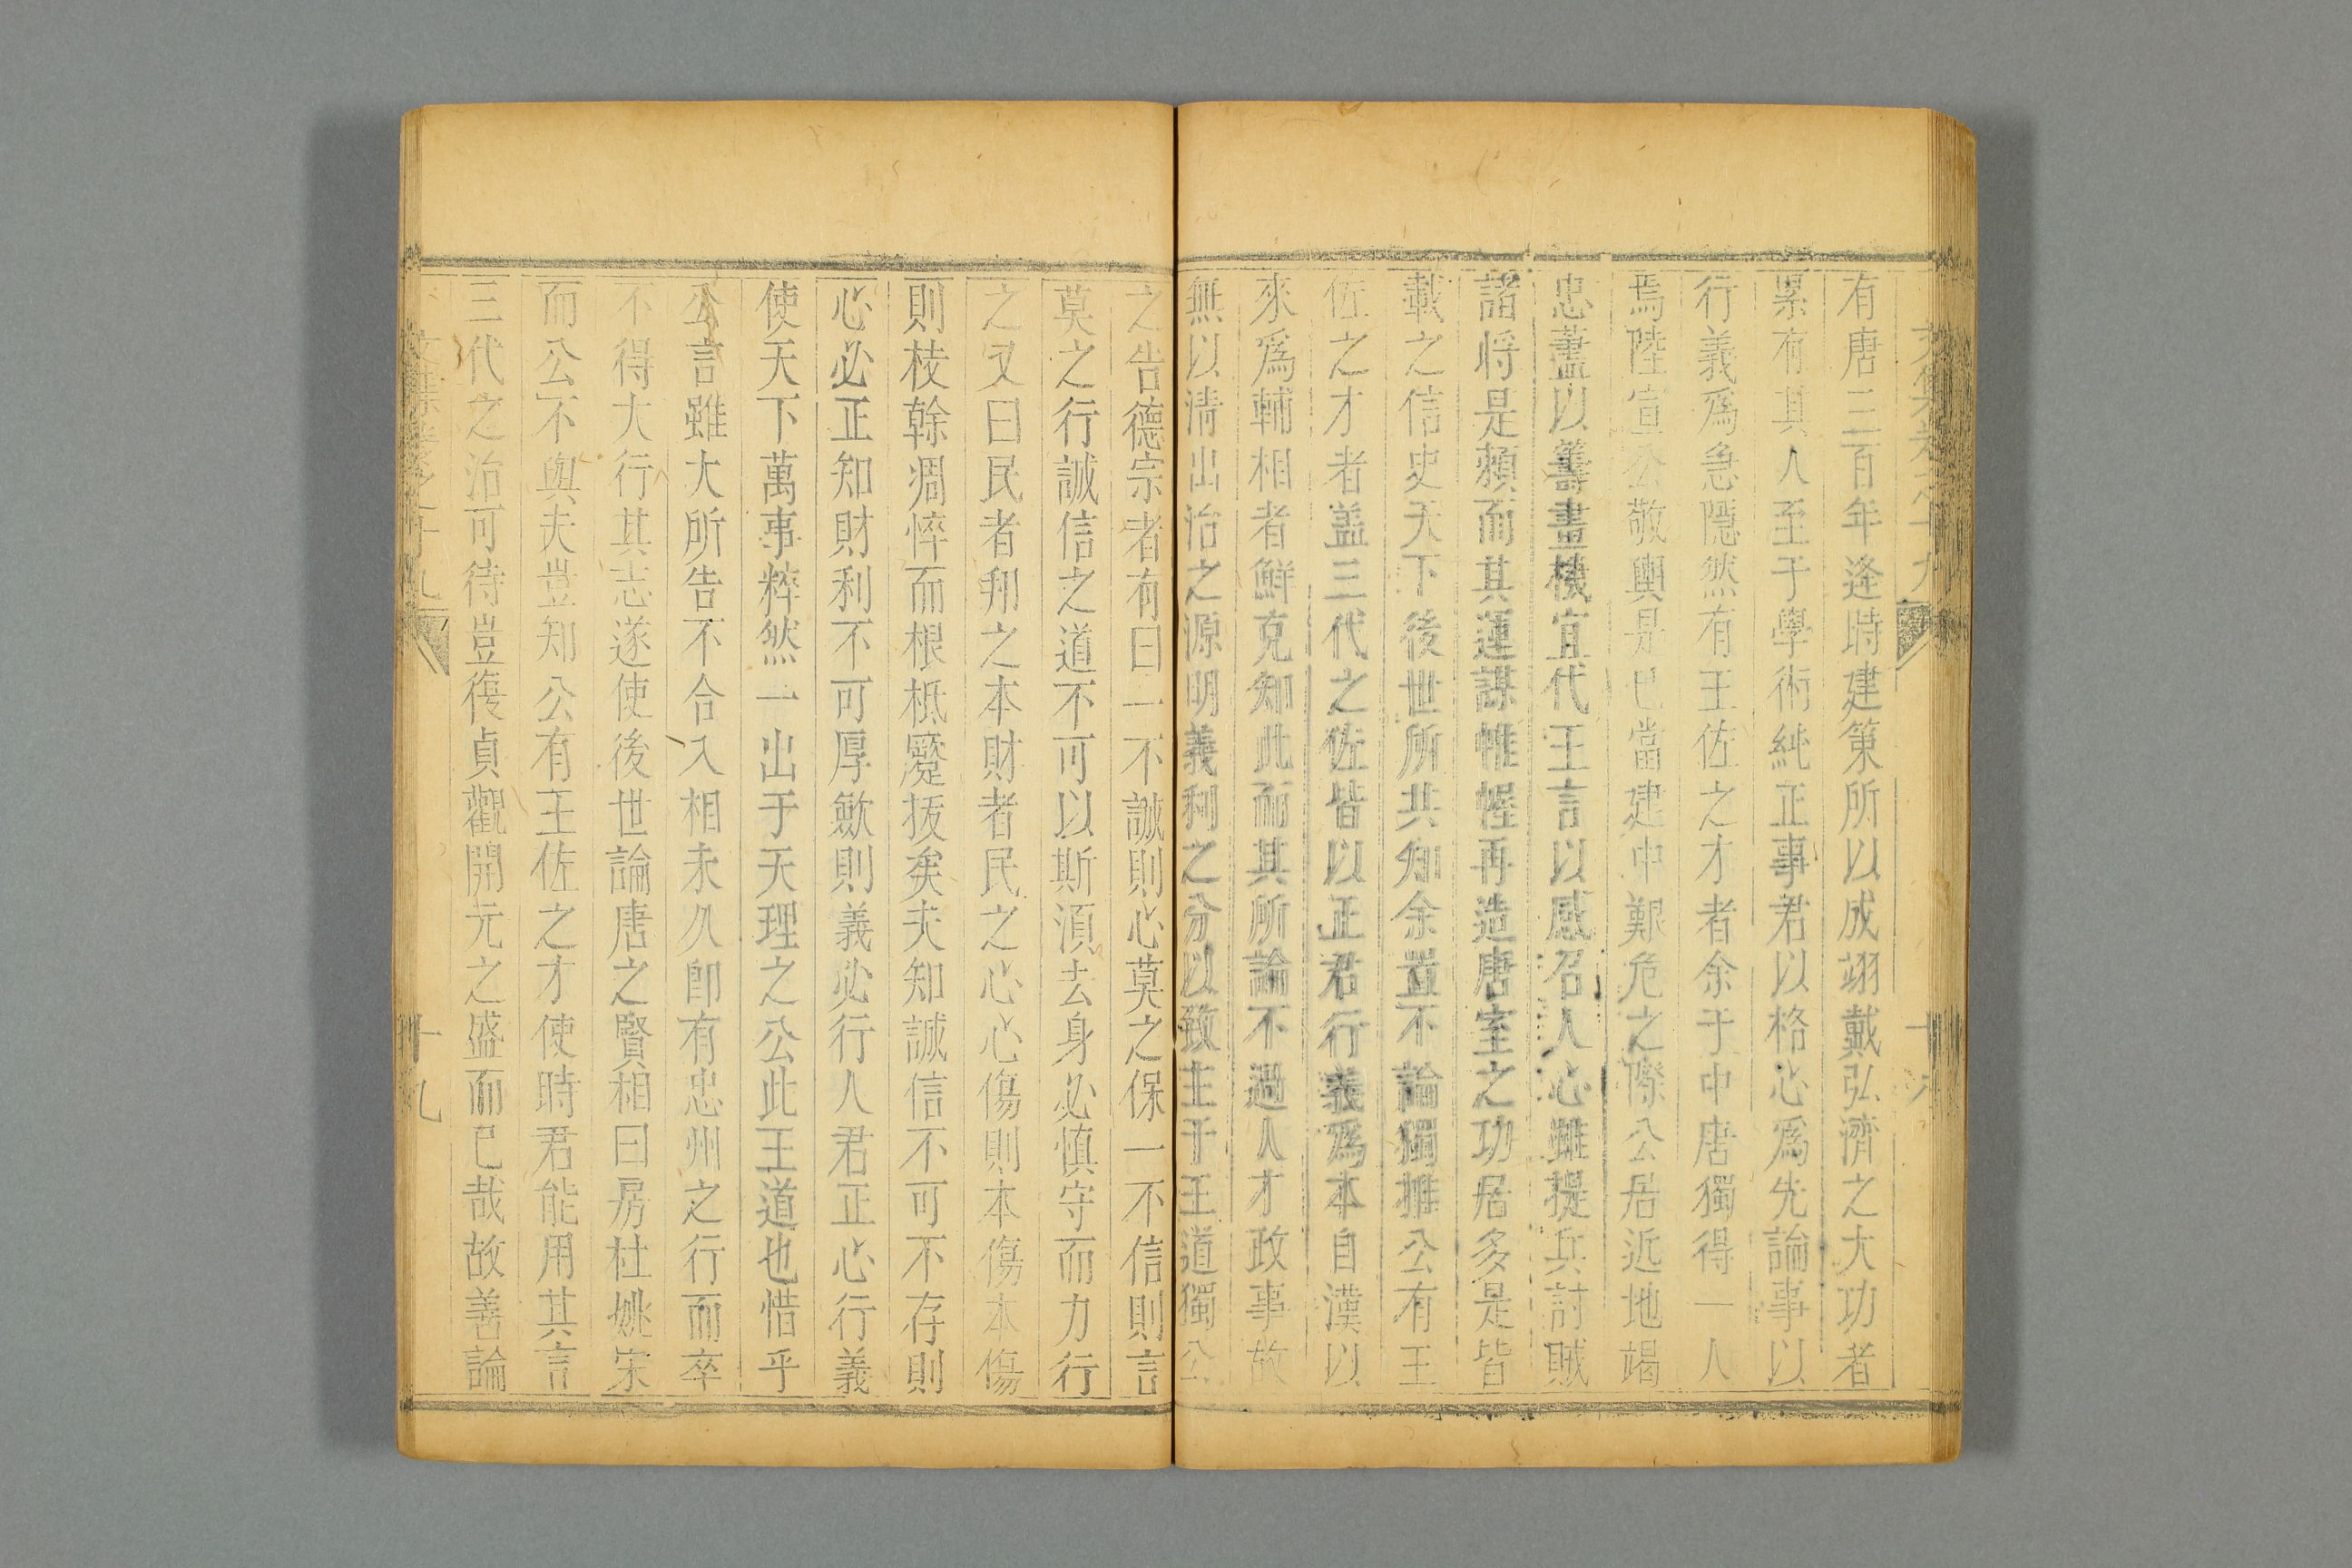 有唐三百年逢時建策所以成翊戴弘濟之大功者
累有其人至于學術純正事君以格心爲先論事以
行義爲急隱然有王佐之才者余于中唐獨得一人
焉陸宣公敬輿是已當建中艱危之際公居近地竭
忠藎以籌畫機宜代王言以感召人心雖提兵討賊
諸将是頼而其運謀帷幄再造唐室之功居多是皆
載之信史天下後世所共知余置不論獨推公有王
佐之才者盖三代之佐皆以正君行義爲本自漢以
來爲輔相者鮮克知此而其所論不過人才政事故
無以清出治之源明義利之分以致主于王道獨公
之告德宗者有曰一不誠則心莫之保一不信則言
莫之行誠信之道不可以斯湏去身必慎守而力行
之又曰民者邦之本財者民之心心傷則本傷本傷
則枝幹凋悴而根柢蹷拔矣夫知誠信不可不存則
心必正知財利不可厚歛則義必行人君正心行義
使天下萬事粹然一出于天理之公此王道也惜乎
公言雖大所告不合入相未久卽有忠州之行而卒
不得大行其志遂使後世論唐之賢相曰房杜姚宋
而公不與夫豈知公有王佐之才使時君能用其言
三代之治可待豈復貞觀開元之盛而已哉故善論
文集卷之十九
十九